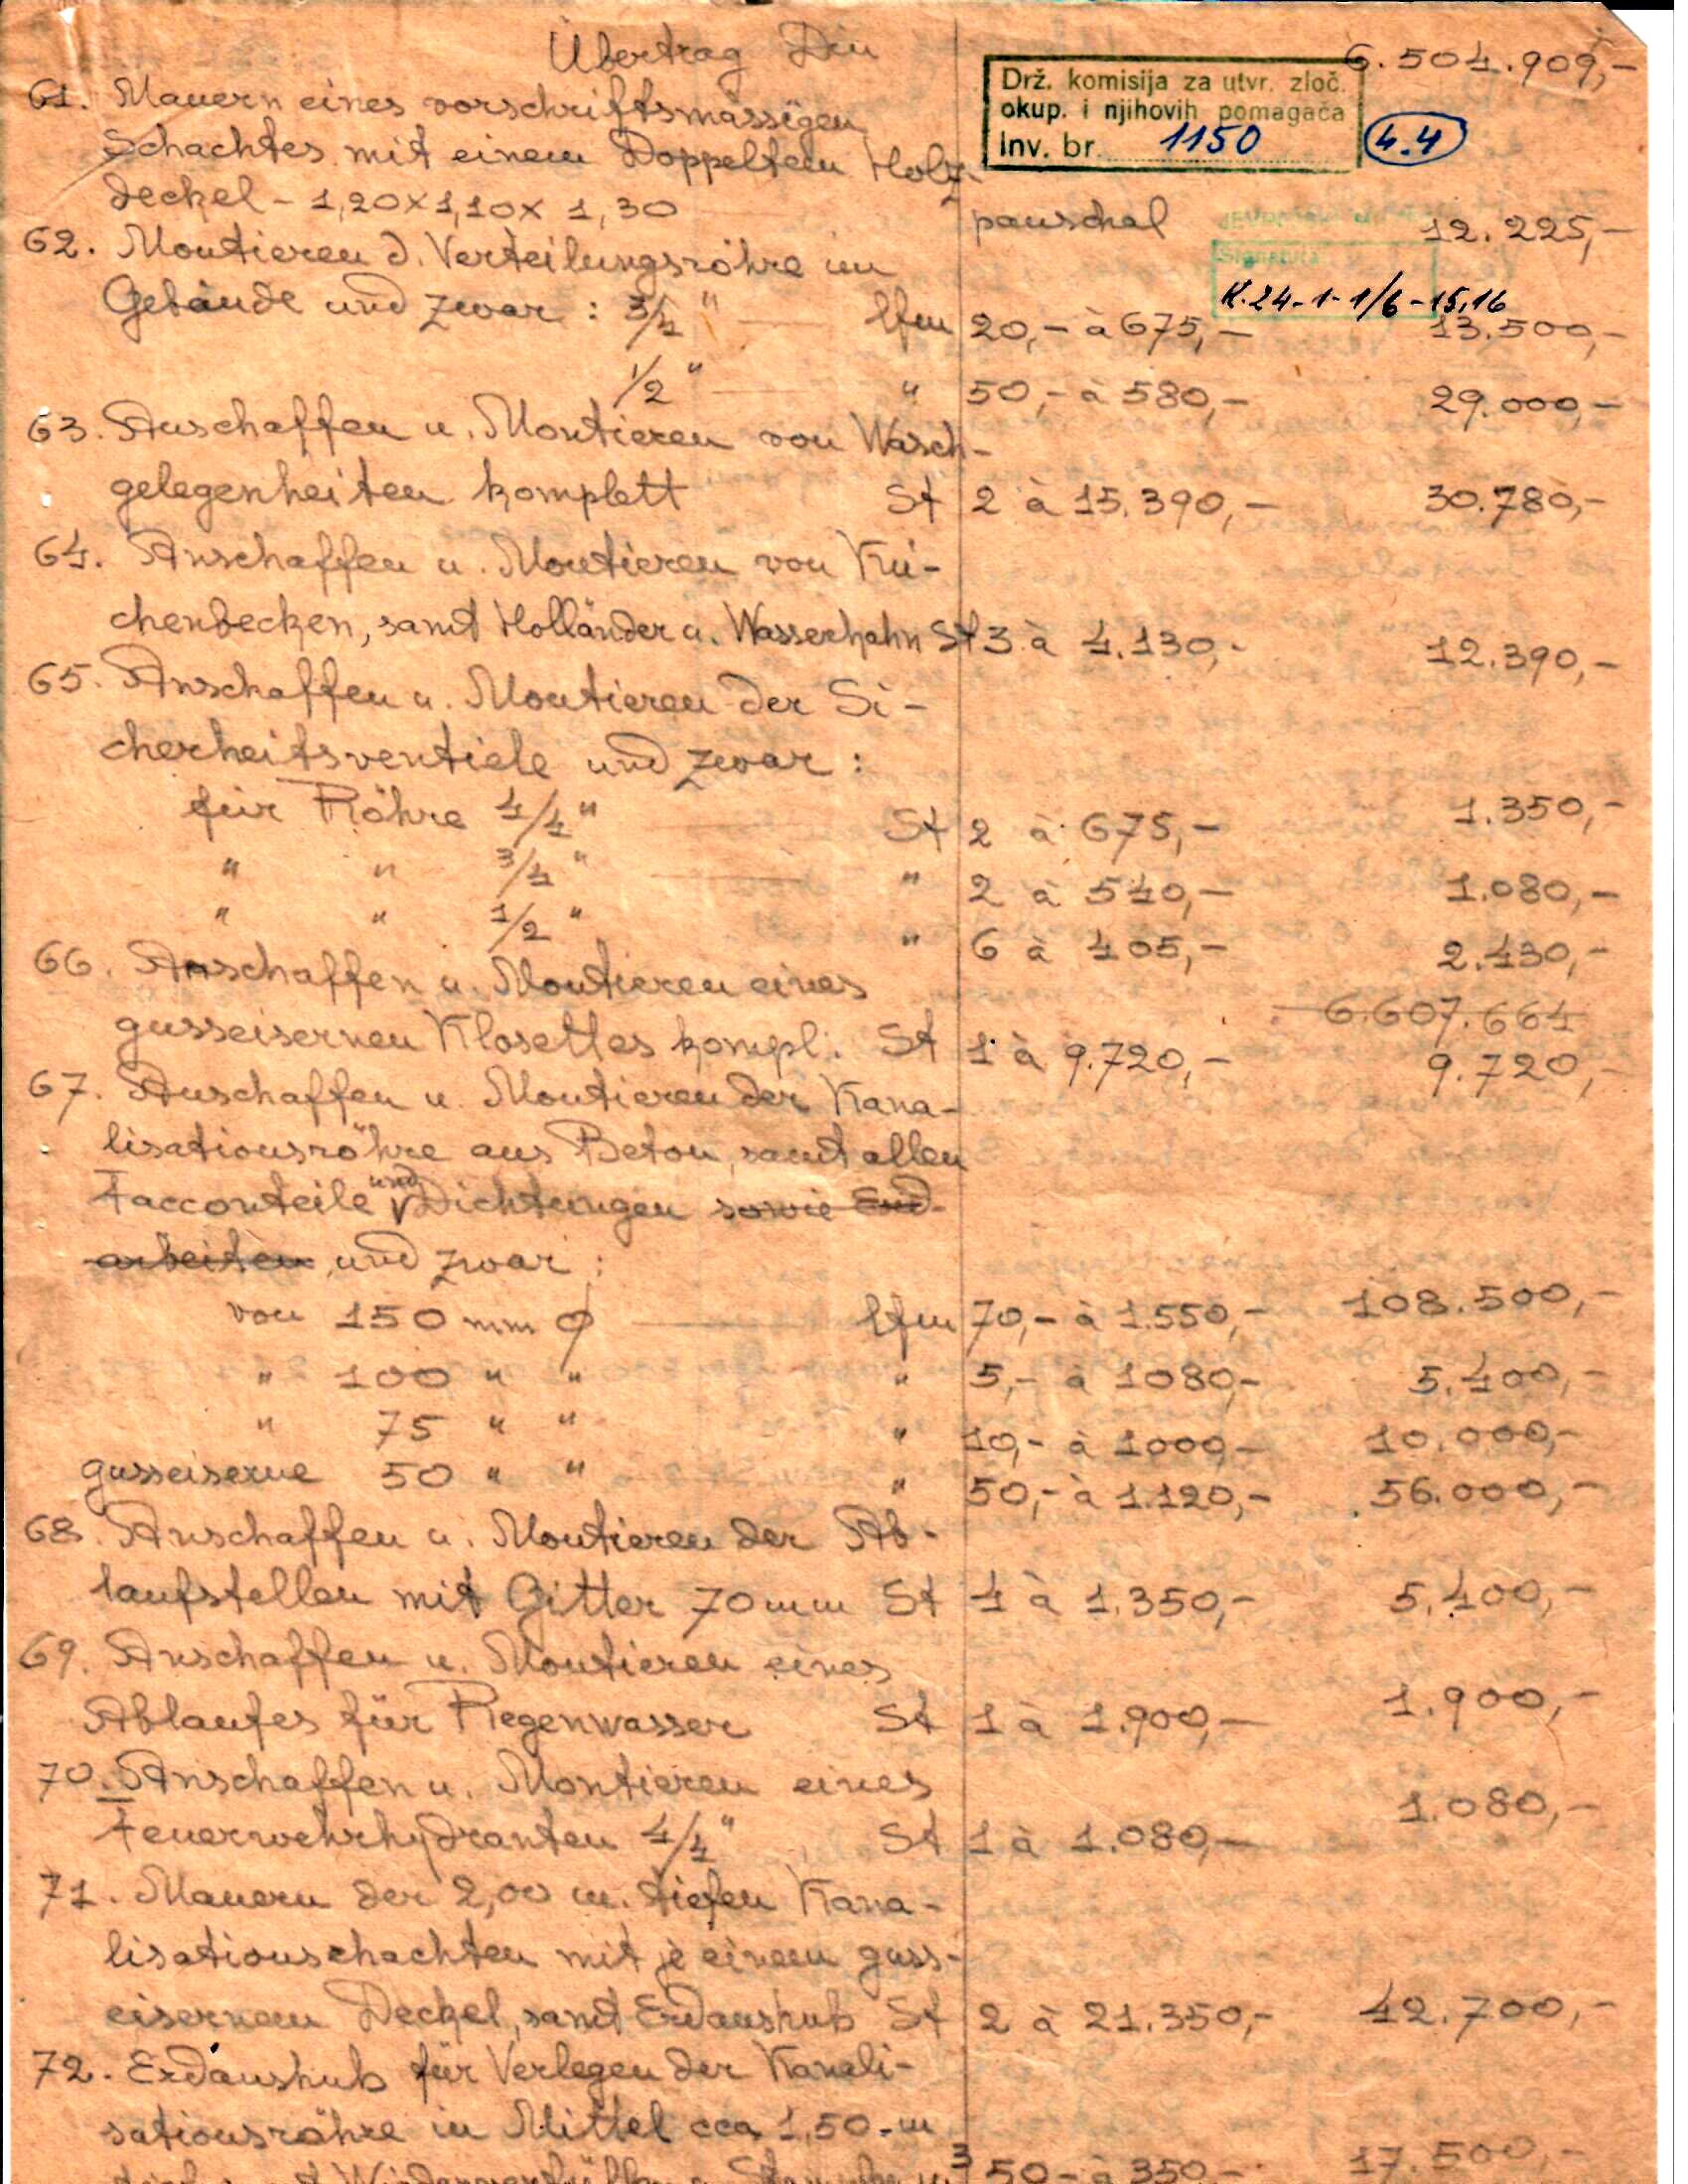 Übertrag Din 6.504.909,-
Drž. komisija za utvr. zloč.
okup. i njihovih pomagača
Inv. br. 1150
4.4
61. Mauern eines vorschriftsmässigen
Schachtes mit einem Doppeltem Holz-
deckel - 1,20x1,10x 1,30 pauschal 12.225,-
Signatura
K.24-1-1/6-15,16
62. Montieren d. Verteilungsröhre im
Gebäude und zwar : 3/4" lfm 20,- à 675,- 13.500,-
1/2" " 50,- à 580,- 29.000,-
63. Anschaffen u. Montieren von Wasch-
gelegenheiten komplett St 2 à 15.390,- 30.780,-
64. Anschaffen u. Montieren von Kü-
chenbecken, samt Holländer u. Wasserhahn St 3 à 4.130,- 12.390,-
65. Anschaffen u. Montieren der Si-
cherheitsventiele und zwar :
für Röhre 4/4" St 2 à 675,- 1.350,-
" " 3/4" " 2 à 540,- 1.080,-
" " 1/2" " 6 à 405,- 2.430,-
6.607.664
66. Anschaffen u. Montieren eines
gusseisernen Klosettes kompl. St 1 à 9.720,- 9.720,-
67. Anschaffen u. Montieren der Kana-
lisationsröhre aus Beton, samt allen
Facconteile und Dichtungen sowie Erd-
arbeiten und zwar :
von 150 mm ϕ lfm 70,- à 1.550,- 108.500,-
" 100 " " " 5,- à 1080,- 5.400,-
" 75 " " " 10,- à 1000,- 10.000,-
gusseiserne 50 " " " 50,- à 1.120,- 56.000,-
68. Anschaffen u. Montieren der Ab-
laufstellen mit Gitter 70 mm St 4 à 1.350,- 5.400,-
69. Anschaffen u. Montieren eines
Ablaufes für Regenwasser St 1 à 1.900,- 1.900,-
70. Anschaffen u. Montieren eines
Feuerwehrhydranten 4/4" St 1 à 1.080,- 1.080,-
71. Mauern der 2,00 m. tiefen Kana-
lisationschachten mit je einem guss-
eisernem Deckel, samt Erdaushub St 2 à 21.350,- 42.700,-
72. Erdaushub für Verlegen der Kanali-
sationsröhre in Mittel cca 1,50 -m
m³ 50,- à 350,- 17.500,-